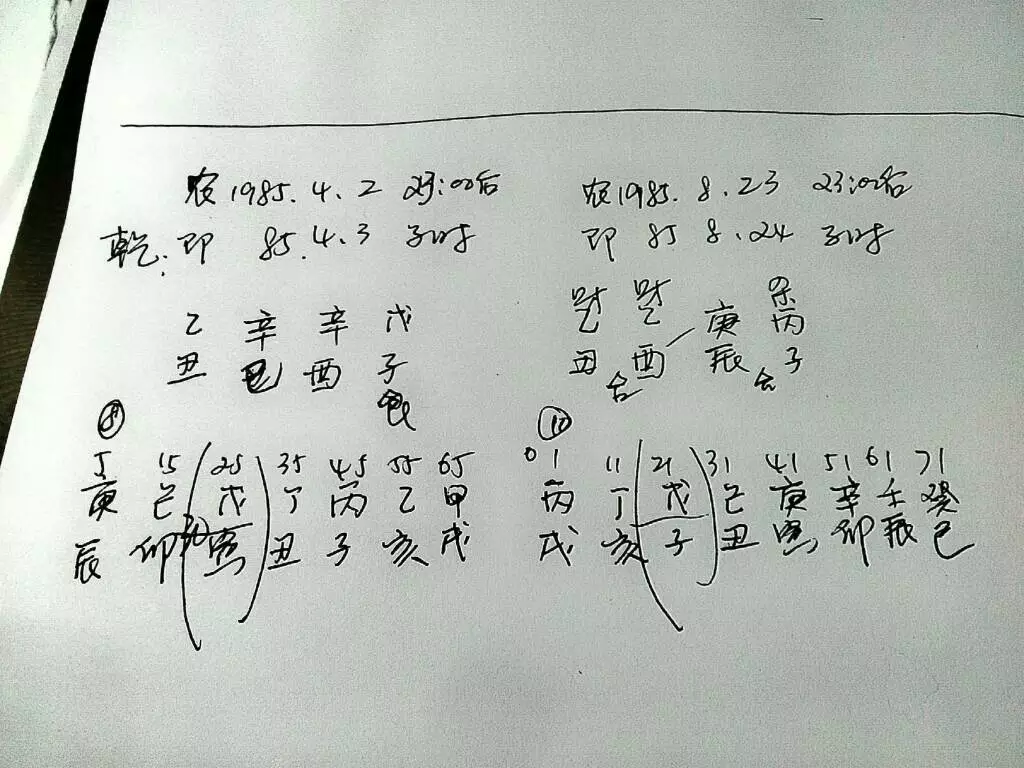 农1985.4.2 23:00后
乾:即 85.4.3 子时
乙 辛 辛 戊
丑 巳 酉 子
⑧
5 15 25 35 45 55 65
庚 己 戊 丁 丙 乙 甲
辰 卯 寅 丑 子 亥 戌
农1985.8.23 23:00后
即 85 8.24 子时
财 财 杀
乙 乙 庚 丙
丑 酉 辰 子
合 合
⑩
01 11 21 31 41 51 61 71
丙 丁 戊 己 庚 辛 壬 癸
戌 亥 子 丑 寅 卯 辰 巳